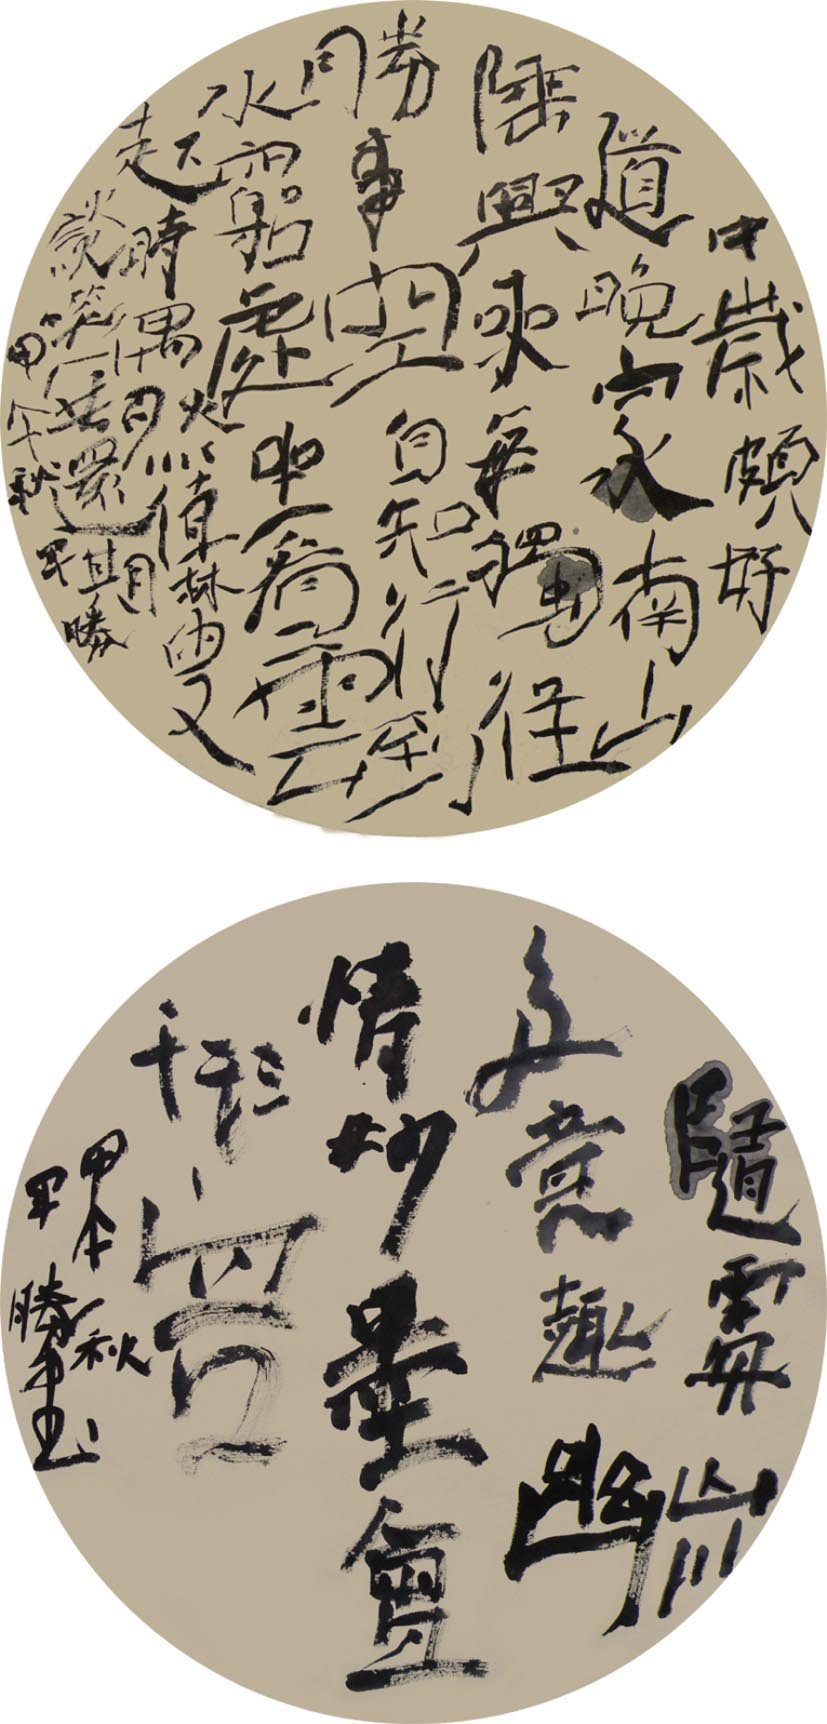 中歲頗好
道晚家南山
陲興來每獨往
勝事空自知行到
水窮處坐看雲
起時偶然值林叟
談笑無還期
甲午秋
平勝
隨山川
意趣幽
情妙墨會
形容
甲午秋
平勝書